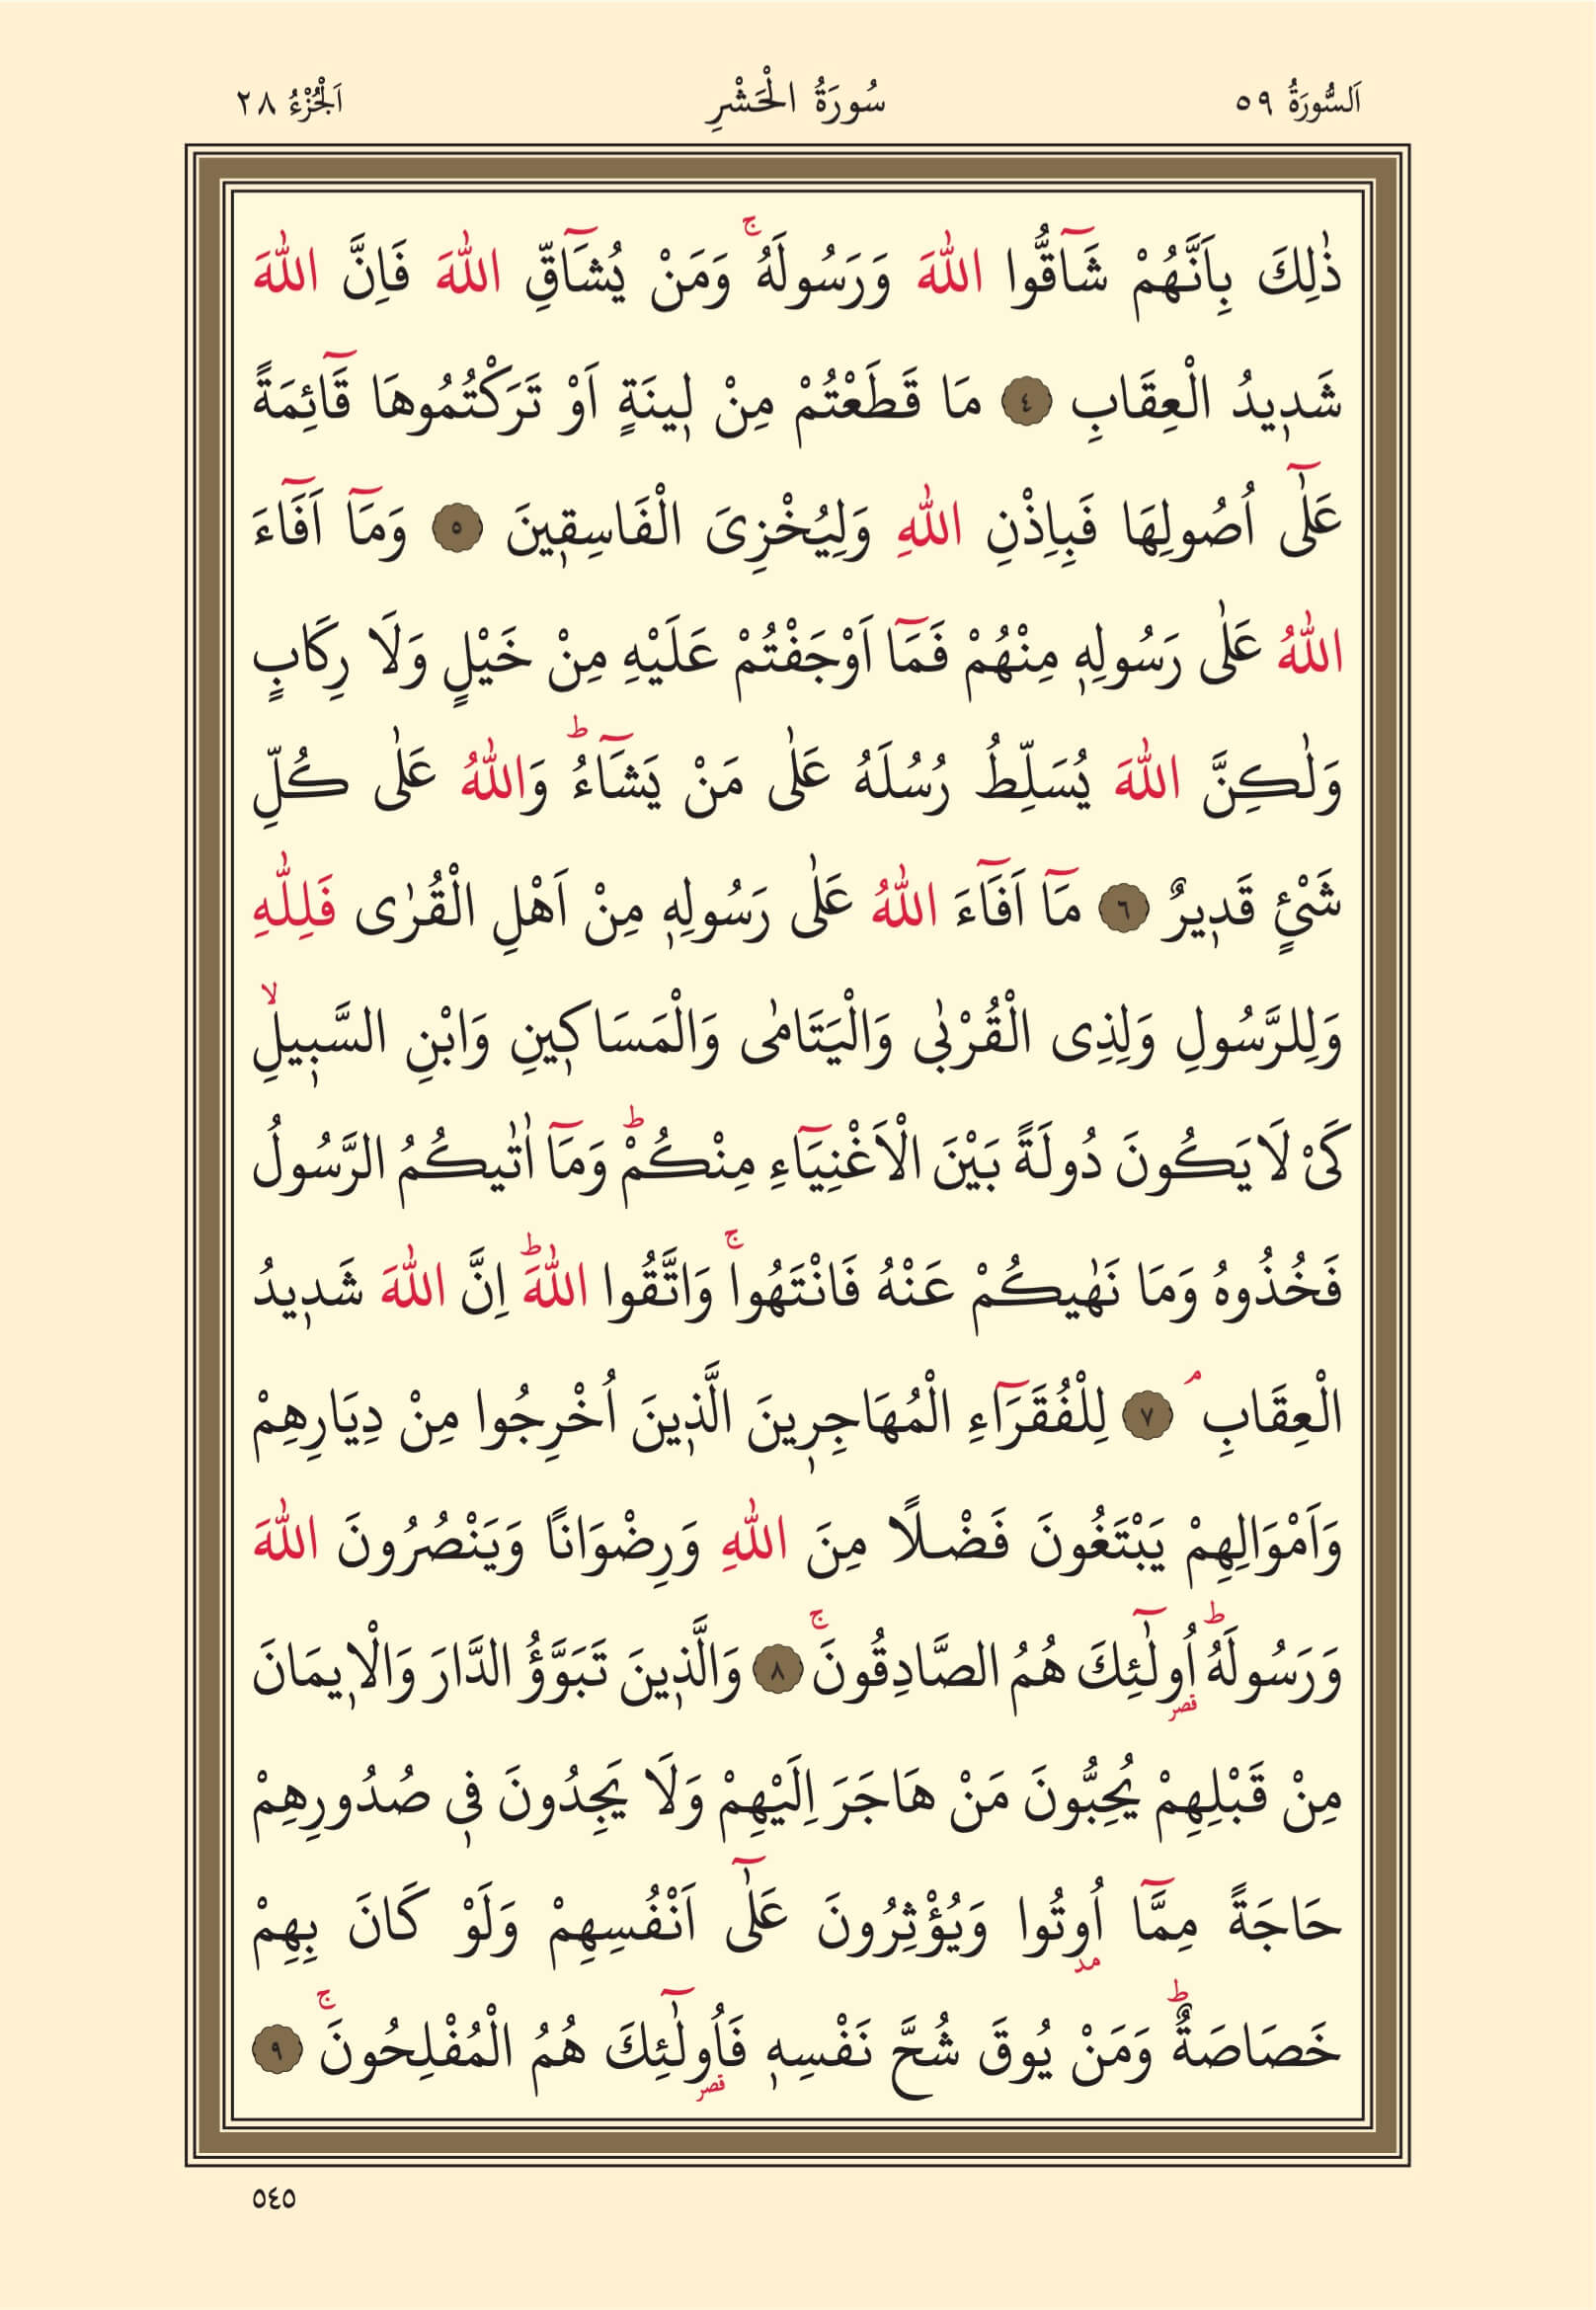 اَلسُّورَةُ ٥٩ سُورَةُ الْحَشْرِ اَلْجُزْءُ ٢٨
ذٰلِكَ بِاَنَّهُمْ شَٓاقُّوا اللّٰهَ وَرَسُولَهُۚ وَمَنْ يُشَٓاقِّ اللّٰهَ فَاِنَّ اللّٰهَ
شَد۪يدُ الْعِقَابِ ٤ مَا قَطَعْتُمْ مِنْ ل۪ينَةٍ اَوْ تَرَكْتُمُوهَا قَٓائِمَةً
عَلٰٓى اُصُولِهَا فَبِاِذْنِ اللّٰهِ وَلِيُخْزِىَ الْفَاسِق۪ينَ ٥ وَمَٓا اَفَٓاءَ
اللّٰهُ عَلٰى رَسُولِه۪ مِنْهُمْ فَمَٓا اَوْجَفْتُمْ عَلَيْهِ مِنْ خَيْلٍ وَلَا رِكَابٍ
وَلٰكِنَّ اللّٰهَ يُسَلِّطُ رُسُلَهُ عَلٰى مَنْ يَشَٓاءُۜ وَاللّٰهُ عَلٰى كُلِّ
شَىْئٍ قَد۪يرٌ ٦ مَٓا اَفَٓاءَ اللّٰهُ عَلٰى رَسُولِه۪ مِنْ اَهْلِ الْقُرٰى فَلِلّٰهِ
وَلِلرَّسُولِ وَلِذِى الْقُرْبٰى وَالْيَتَامٰى وَالْمَسَاك۪ينِ وَابْنِ السَّب۪يلِۙ
كَىْ لَا يَكُونَ دُولَةً بَيْنَ الْاَغْنِيَٓاءِ مِنْكُمْۜ وَمَٓا اٰتٰيكُمُ الرَّسُولُ
فَخُذُوهُ وَمَا نَهٰيكُمْ عَنْهُ فَانْتَهُواۚ وَاتَّقُوا اللّٰهَۜ اِنَّ اللّٰهَ شَد۪يدُ
الْعِقَابِۢ ٧ لِلْفُقَرَٓاءِ الْمُهَاجِر۪ينَ الَّذ۪ينَ اُخْرِجُوا مِنْ دِيَارِهِمْ
وَاَمْوَالِهِمْ يَبْتَغُونَ فَضْلًا مِنَ اللّٰهِ وَرِضْوَانًا وَيَنْصُرُونَ اللّٰهَ
وَرَسُولَهُۜ اُو۬لٰٓئِكَ هُمُ الصَّادِقُونَۚ ٨ وَالَّذ۪ينَ تَبَوَّؤُ الدَّارَ وَالْا۪يمَانَ
مِنْ قَبْلِهِمْ يُحِبُّونَ مَنْ هَاجَرَ اِلَيْهِمْ وَلَا يَجِدُونَ ف۪ى صُدُورِهِمْ
حَاجَةً مِمَّٓا اُو۫تُوا وَيُؤْثِرُونَ عَلٰٓى اَنْفُسِهِمْ وَلَوْ كَانَ بِهِمْ
خَصَاصَةٌۜ وَمَنْ يُوقَ شُحَّ نَفْسِه۪ فَاُو۬لٰٓئِكَ هُمُ الْمُفْلِحُونَۚ ٩
٥٤٥